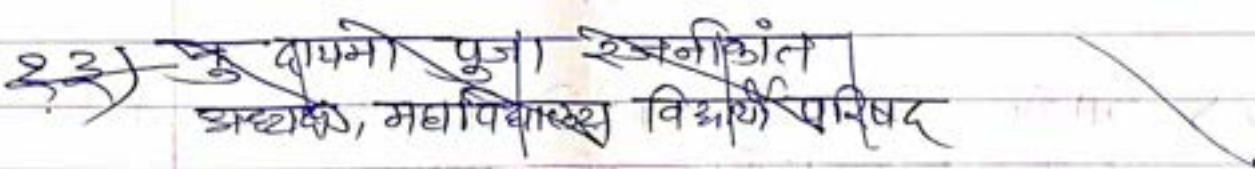 २३) कु दायमा पूजा रजनीकांत
अध्यक्ष, महाविद्यालय विद्यार्थी परिषद